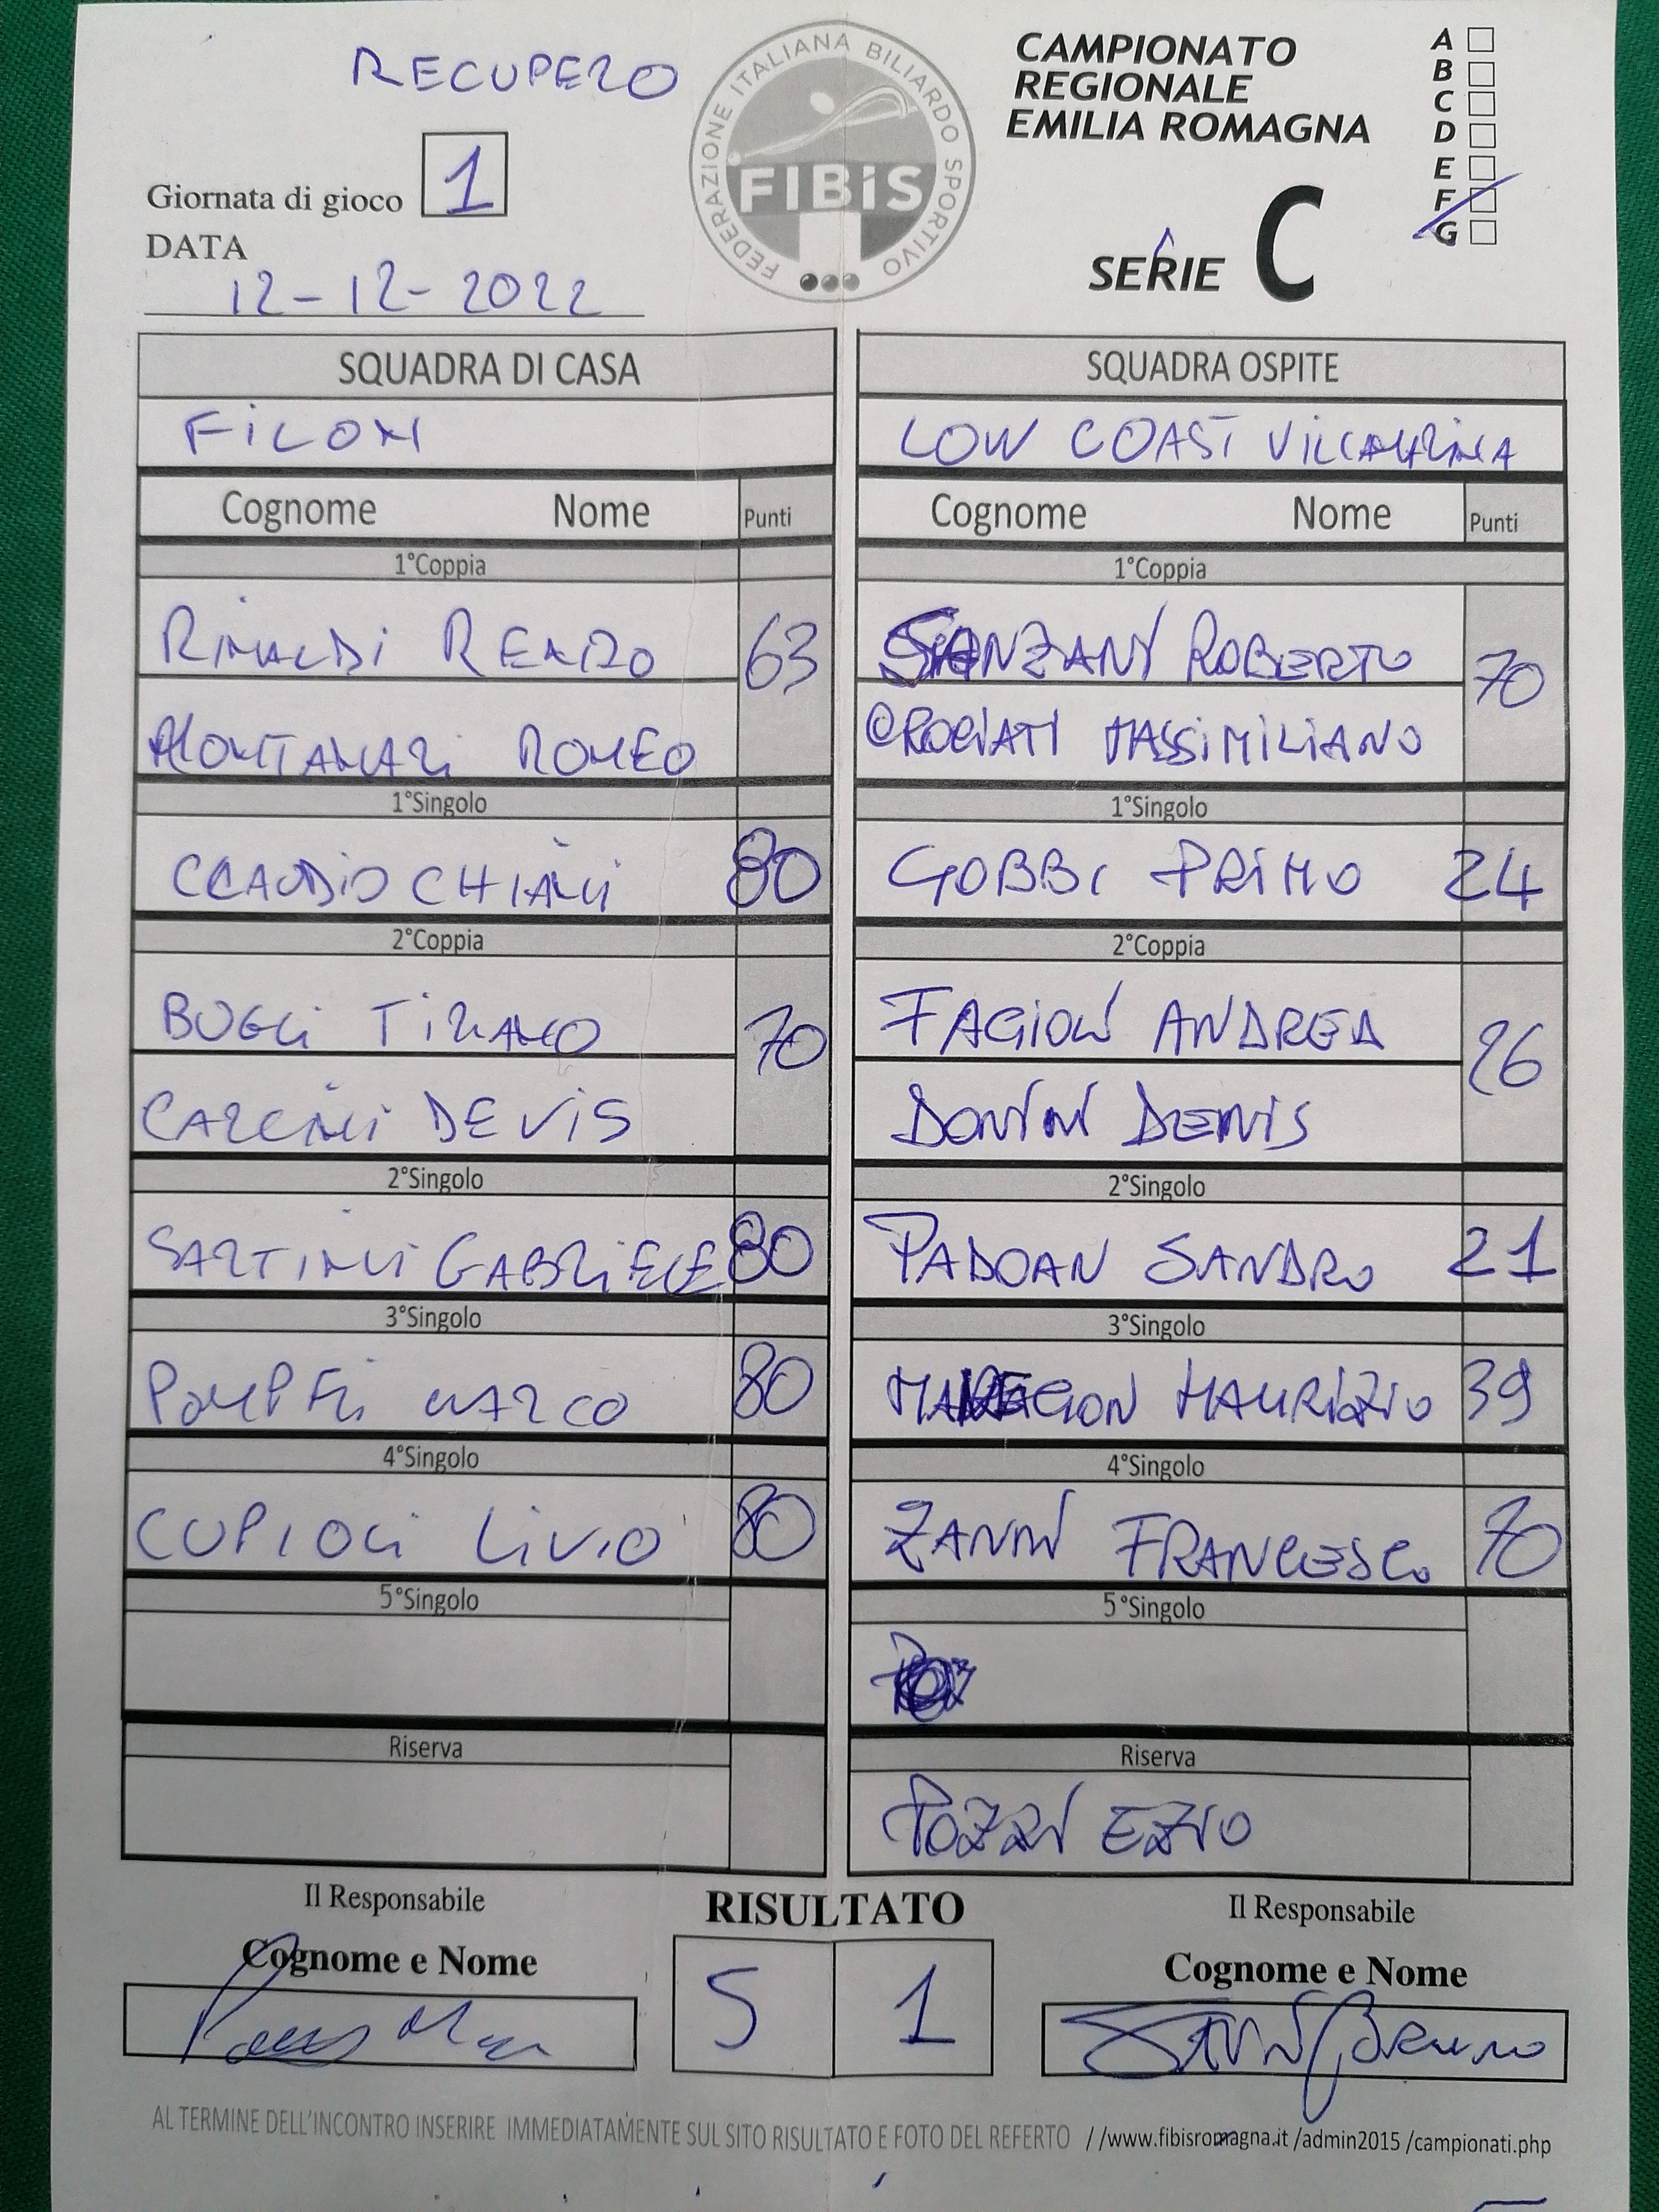 RECUPERO
FEDERAZIONE ITALIANA BILIARDO SPORTIVO
FIBiS
CAMPIONATO
REGIONALE
EMILIA ROMAGNA
A
B
C
D
E
F
G
Giornata di gioco 1
DATA
12-12-2022
SERIE C
SQUADRA DI CASA
FiLON
SQUADRA OSPITE
LOW COAST VILLAMARINA
Cognome Nome Punti
Cognome Nome Punti
1°Coppia
RiNALDi RENZO 63
MONTANARi ROMEO
1°Coppia
SANZANI ROBERTO 70
CROCIATI MASSiMILIANO
1°Singolo
CLAUDIO CHIANI 80
1°Singolo
GOBBI PRIMO 24
2°Coppia
BUGLi TiZiANO 70
CARLINI DEVIS
2°Coppia
FAGIOLI ANDREA 26
DONINI DENIS
2°Singolo
SARTINI GABRIELE 80
2°Singolo
PADOAN SANDRO 21
3°Singolo
POMPEi MARCO 80
3°Singolo
MAURIZIO 39
4°Singolo
CUPIOLI LiVIO 80
4°Singolo
ZANNI FRANCESCO 70
5°Singolo
5°Singolo
Riserva
Riserva
POZZI EZIO
Il Responsabile
Cognome e Nome
RISULTATO
5 1
Il Responsabile
Cognome e Nome
AL TERMINE DELL'INCONTRO INSERIRE IMMEDIATAMENTE SUL SITO RISULTATO E FOTO DEL REFERTO //www.fibisromagna.it /admin2015 /campionati.php